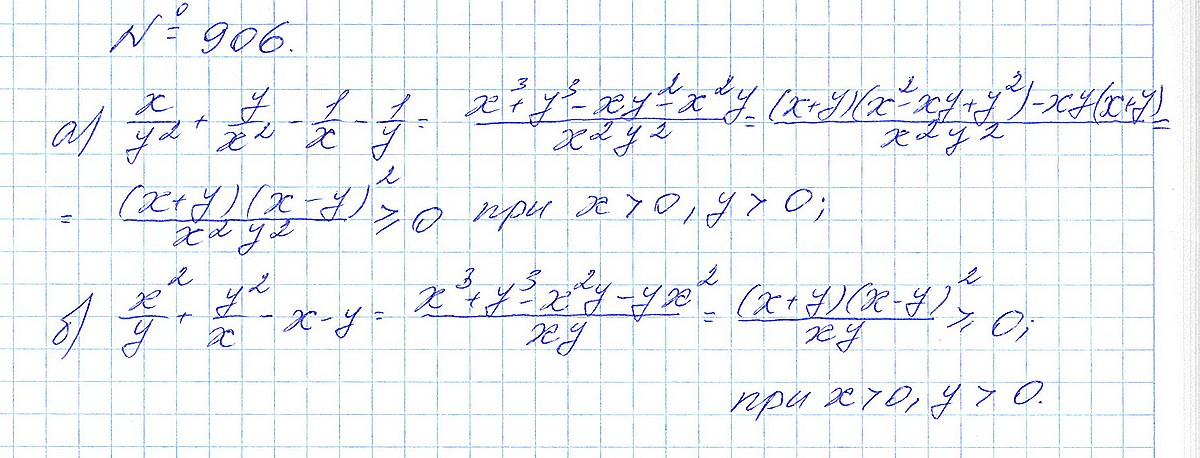 № 906.
а) x/y² + y/x² - 1/x - 1/y = (x³ + y³ - xy² - x²y)/(x²y²) = ((x+y)(x² - xy + y²) - xy(x+y))/(x²y²) =
= ((x+y)(x-y)²)/(x²y²) ≥ 0 при x > 0, y > 0;
б) x²/y + y²/x - x - y = (x³ + y³ - x²y - yx²)/(xy) = ((x+y)(x-y)²)/(xy) ≥ 0;
при x > 0, y > 0.